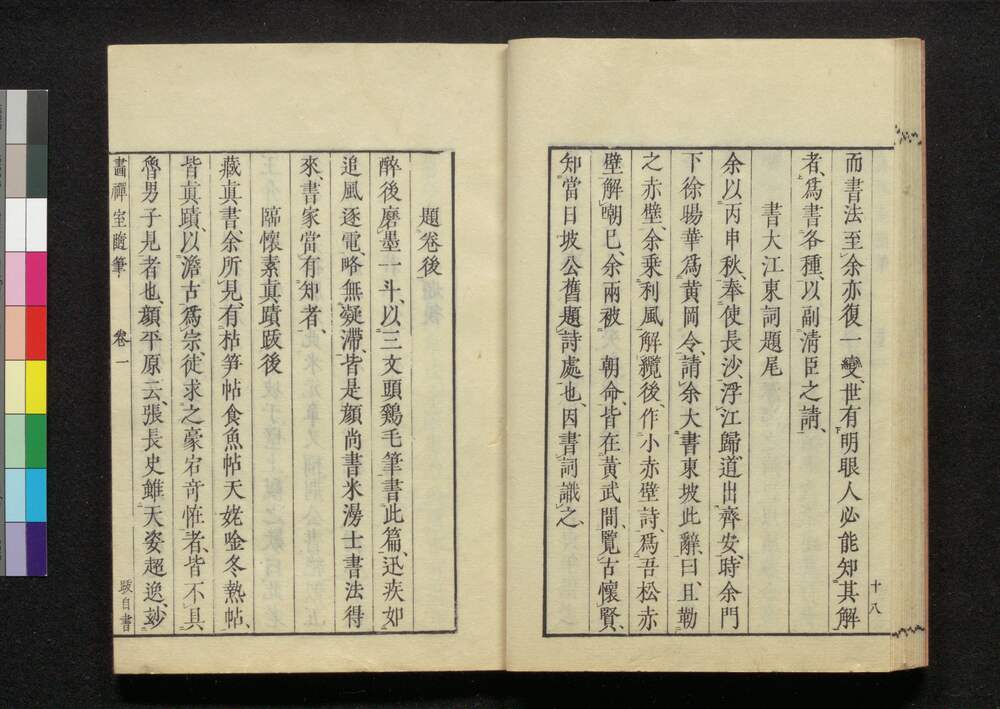 而書法至余亦復一變、世有明眼人必能知其解
者、爲書各種、以副淸臣之請、
書大江東詞題尾
余以丙申秋、奉使長沙、浮江歸、道出齊安、時余門
下徐暘華爲黃岡令、請余大書東坡此辭、曰、且勒
之赤壁、余乘利風解纜後、作小赤壁詩、爲吾松赤
壁解嘲、已、余兩被　朝命、皆在黃武間、覽古懷賢、
知當日坡公舊題詩處也、因書詞識之、
十八
題卷後
醉後磨墨一斗、以三文頭鷄毛筆書此篇、迅疾如
追風逐電、略無凝滯、皆是顔尚書米漫士書法得
來、書家當有知者、
臨懷素眞蹟跋後
藏眞書、余所見、有枯笋帖食魚帖天姥唫冬熱帖、
皆眞蹟、以澹古爲宗、徒求之豪宕奇恠者、皆不具
魯男子見者也、顏平原云、張長史雖天姿超逸、玅
畫禪室隨筆　卷一
跋自書